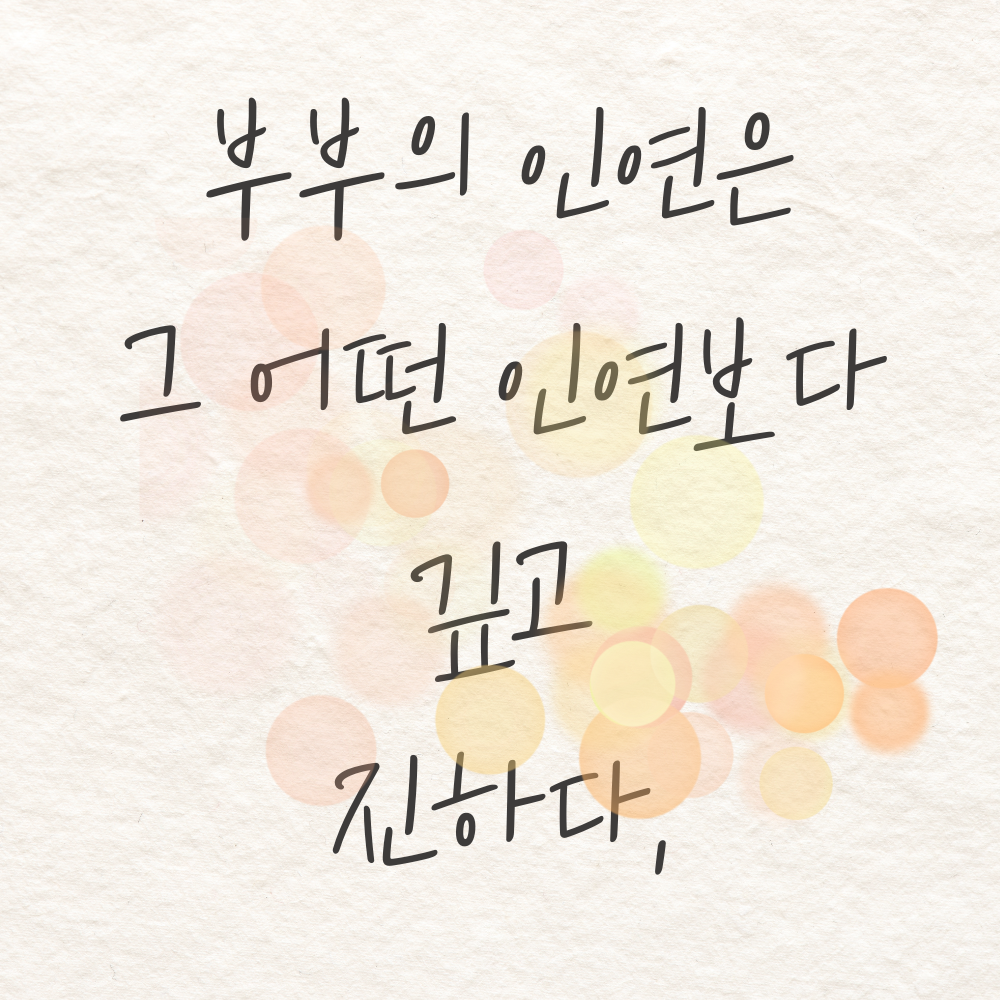 부부의 인연은
그 어떤 인연보다
깊고
진하다,